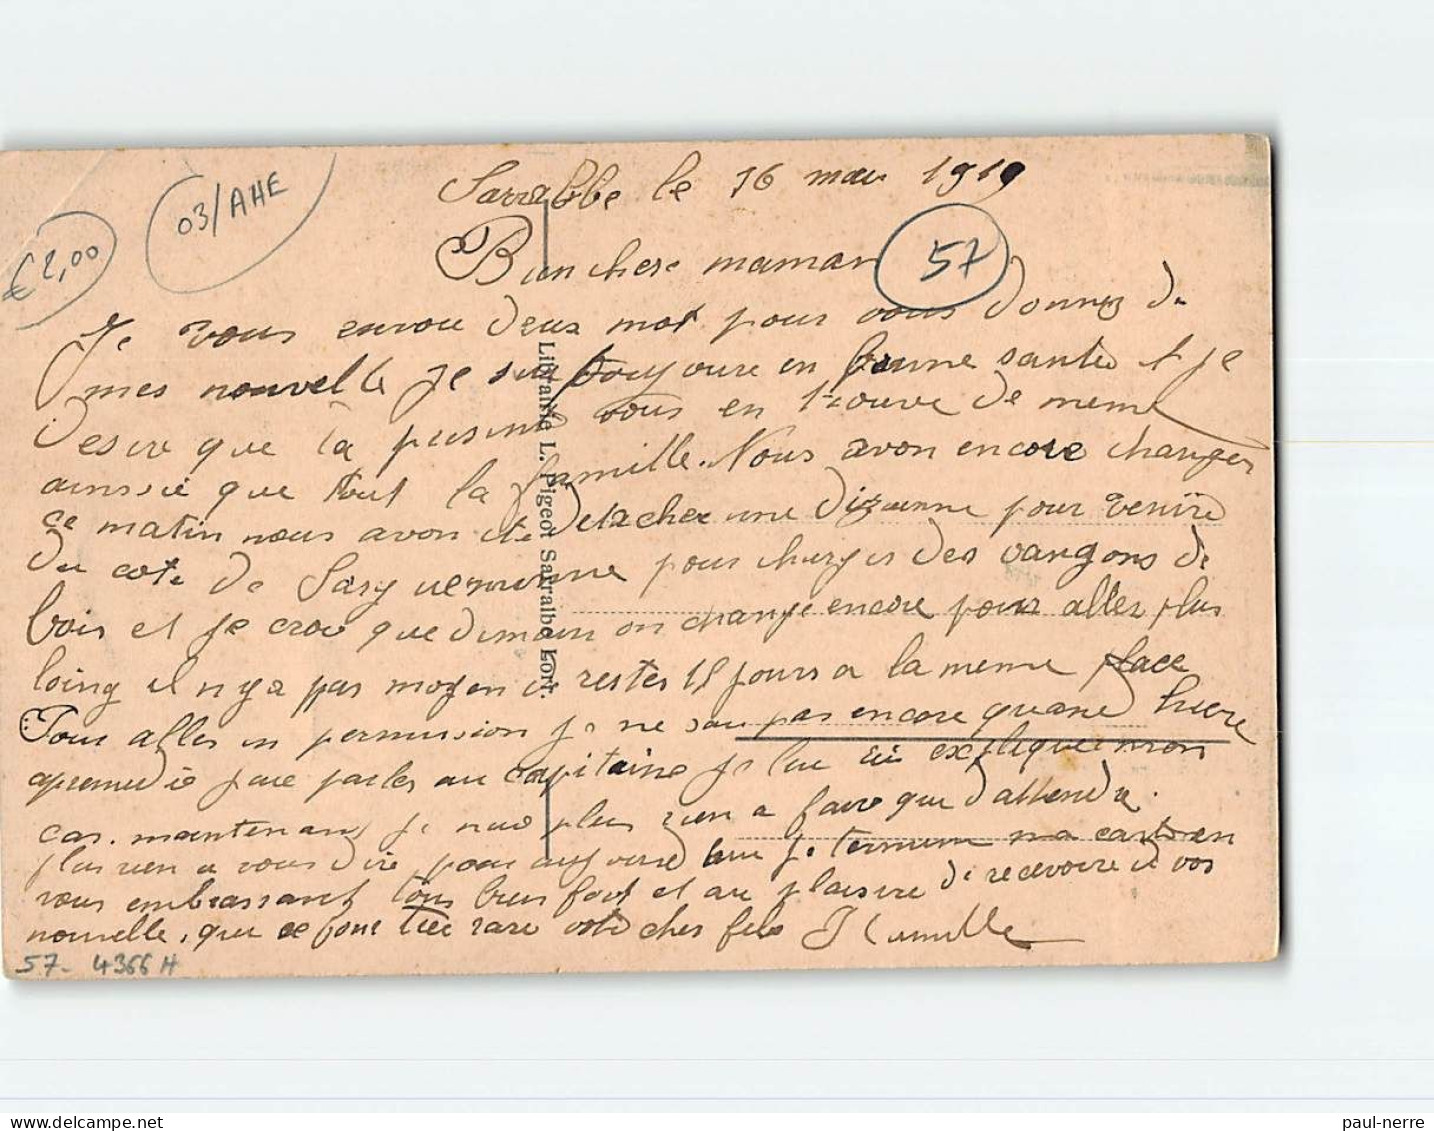 Sarralbe le 16 mai 1919
Bien chere maman
57
03/AHE
€2,00
Je vous envoi deux mot pour vous donnez de
mes nouvelle je suis toujours en bonne santé et je
desire que la presente vous en trouve de meme
ainssie que tout la famille. Nous avon encore changer
ce matin nous avon ete detacher une dizenne pour venire
du cote de Sarguemine pour charger des vangons de
bois et je croi que demain on change encore pour aller plus
loing il n y a pas moyen de rester 15 jours a la meme place
Pour aller en permission je ne sau pas encore quand
apremedie parler au capitaine je lui ai expliquer mon
cas. maintenant je nai plus rien a faire que d'attendre.
plus rien a vous dire pour aujourd'hui je termine ma carte en
vous embrassant tous bien fort et au plaisire de recevoire de vos
nouvelle, que ce pour tres rare votre cher fils
57- 4366 H
Librairie L. Pigeot Sarralbe Lorr.
paul-nerre